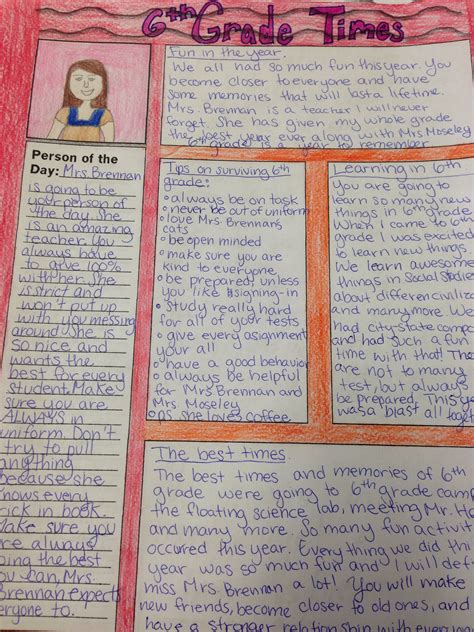 6th Grade Times
Fun in the year.
We all had so much fun this year. You
become closer to everyone and have
some memories that will last a lifetime.
Mrs. Brennan is a teacher I will never
forget. She has given my whole grade
the best year ever along with Mrs Moseley
6th grade is a year to remember
Person of the
Day: Mrs Brennan
is going to be
your person of
the day. She
is an amazing
teacher. You
always have
to give 100%
with her. She
is strict and
won't put up
with you messing
around. She is
so nice and
wants the
best for every
student. Make
sure you are
ALWAYS in
uniform. Don't
try to pull
anything
because she
knows every
trick in book.
Make sure you
are always
doing the best
you can, Mrs.
Brennan expects
everyone to.
Tips on surviving 6th
grade:
• always be on task
• never be out of uniform
• love Mrs. Brennan's
cats
• be open minded
• make sure you are
kind to everyone
• be prepared, unless
you like signing-in
• study really hard
for all of your tests
• give every asignment
your all
• have a good behavior
• always be helpful
for Mrs Brennan and
Mrs Moseley
• PS she loves coffee
Learning in 6th
You are going to
learn so many new
things in 6th grade.
When I came to 6
grade I was excited
to learn new things.
We learn awesome
things in Social Studies
about differen civiliz
and many more. We
had city-state comp
and had such a fun
time with that! The
are not to many
test, but always
be prepared. This ye
was a blast all toget
The best times.
The best times and memories of 6th
grade were going to 6th grade camp
the floating science lab, meeting Mr. Ho
and many more. So many fun activit
occured this year. Everything we did th
year was so much fun and I will def
miss Mrs. Brennan a lot! You will make
new friends, become closer to old ones, and
have a stronger relationship with everyone